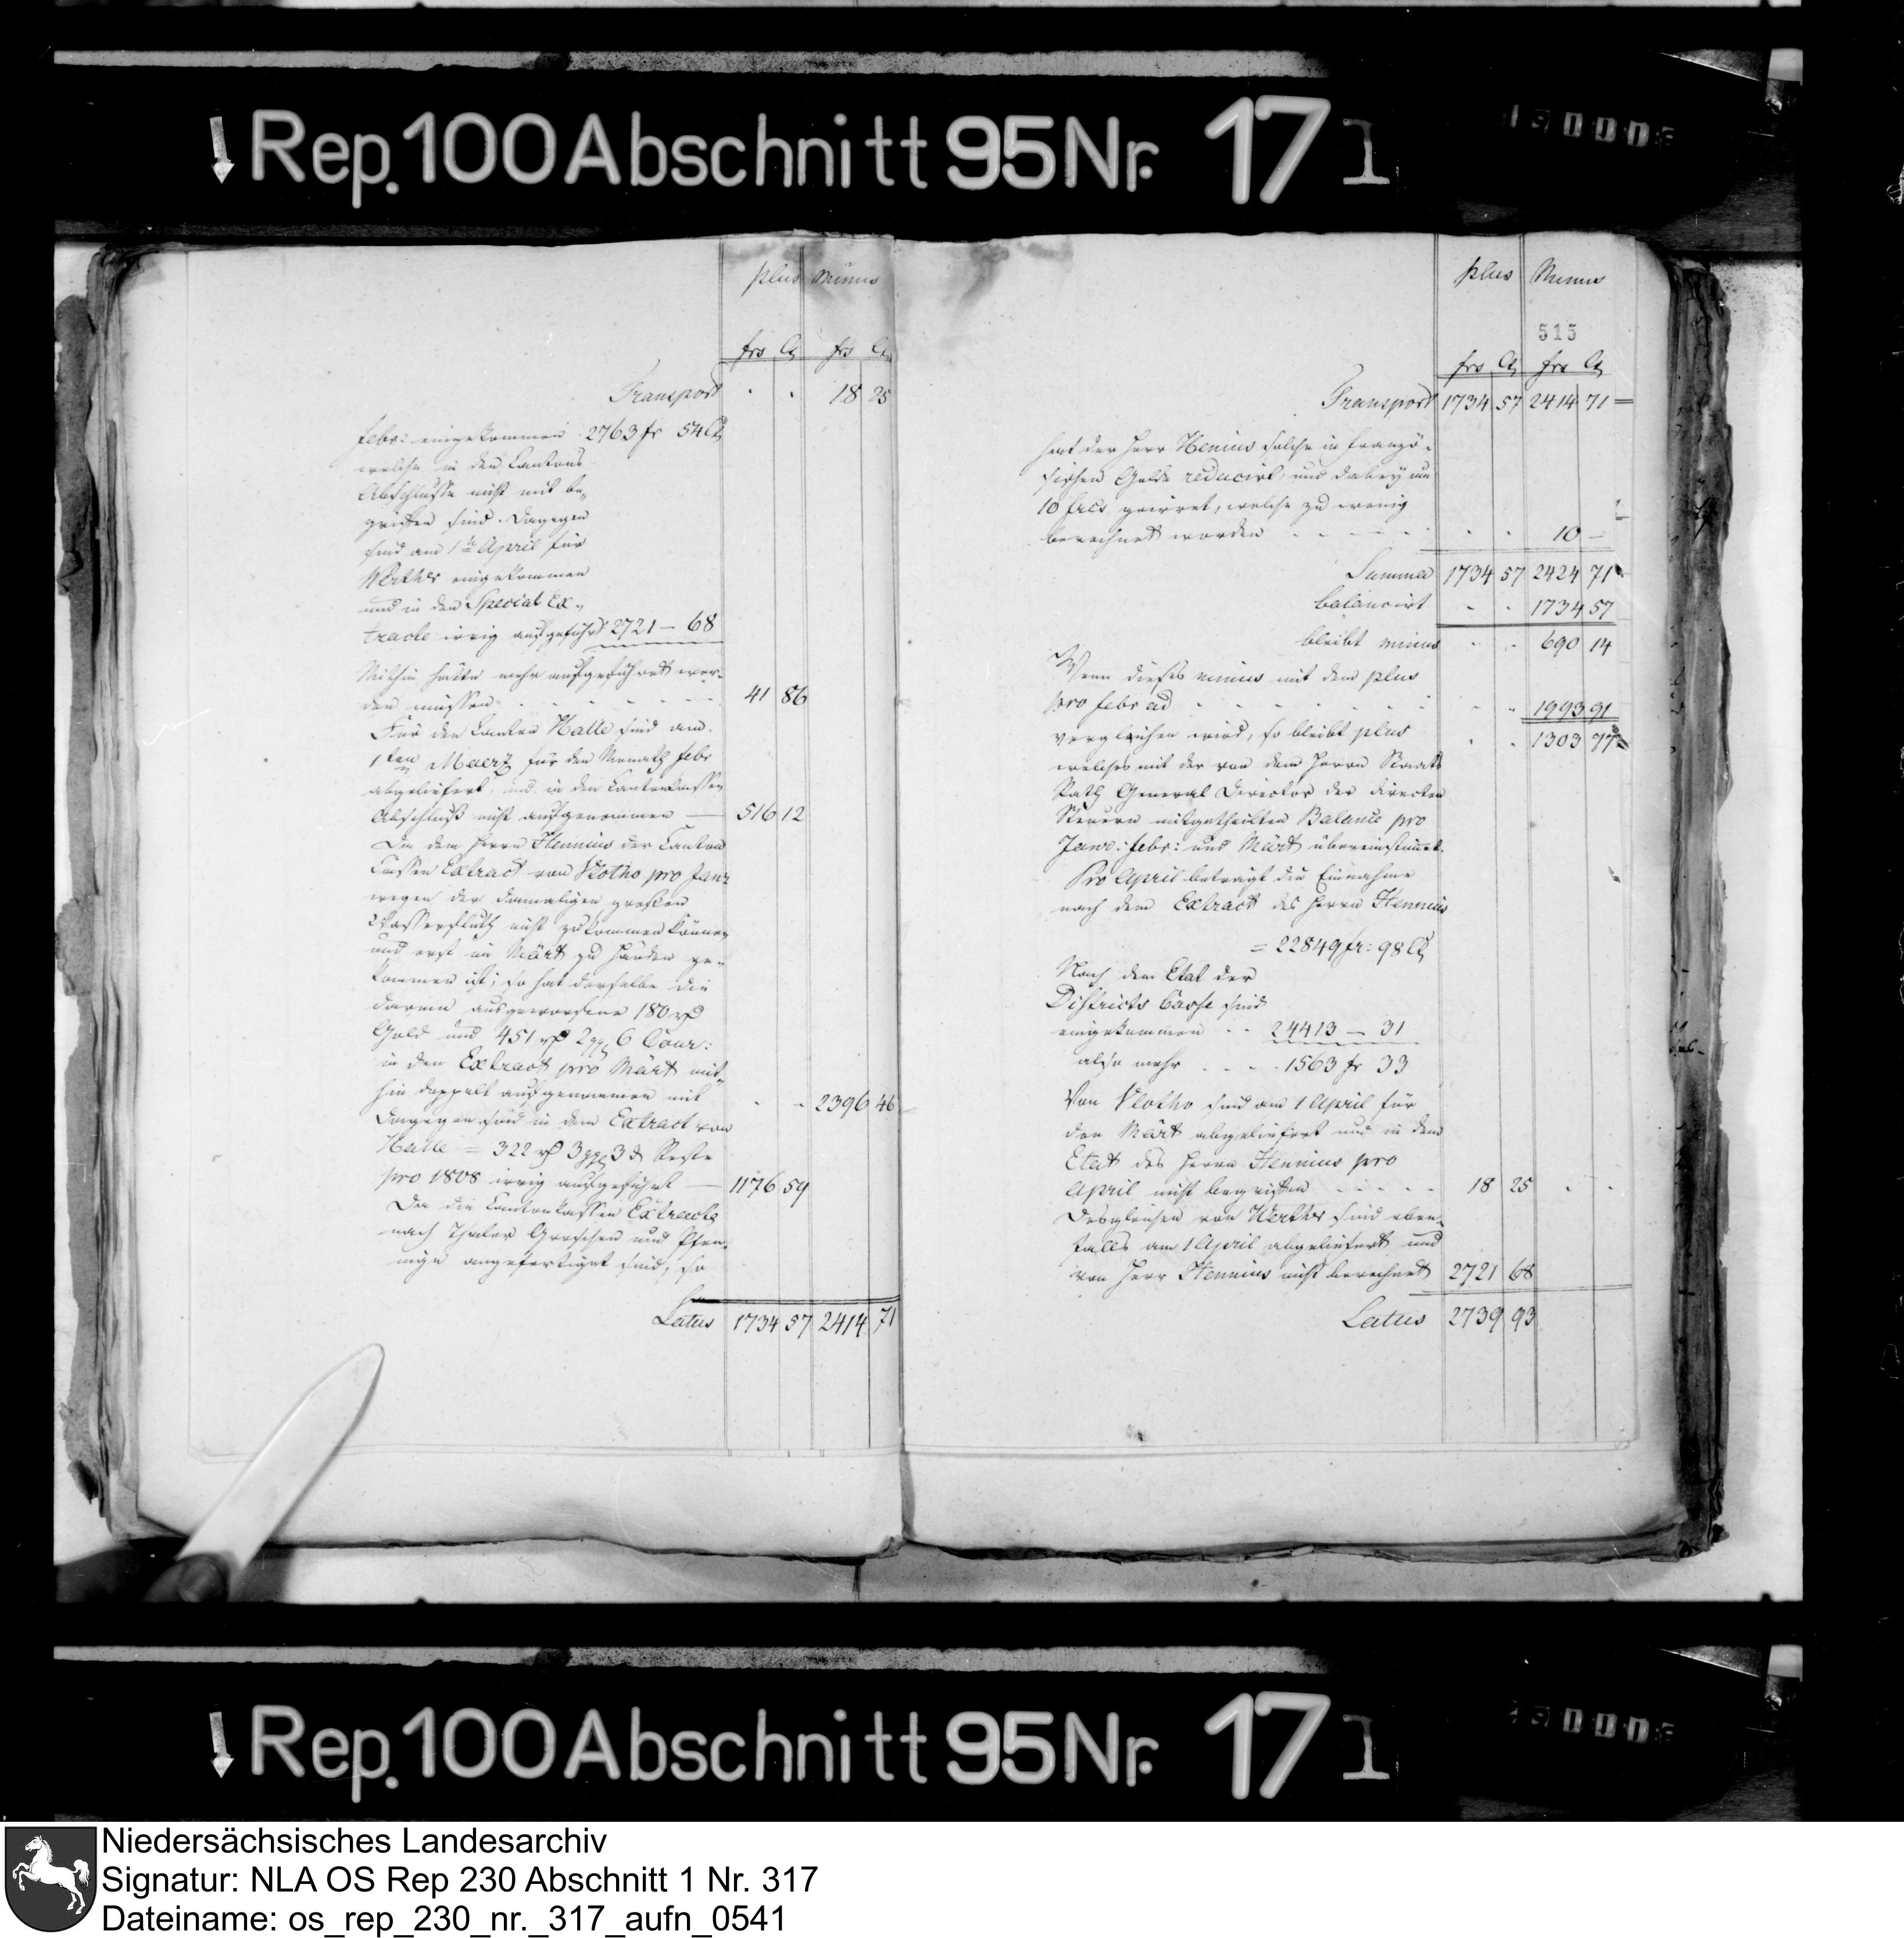 Rep. 100 Abschnitt 95 Nr. 171
plus Minus
frs Ct frs Ct
Transport 18 25
febr: eingekommen 2763 fr 54 Ct
welche in den Cantons
Abschlüsse nicht mit be-
griffen sind. Dagegen
sind am 1ten April für
Werther eingekommen
und in den Special Ex-
tracte irrig aufgeführt 2721 – 68
Mithin hätte mehr aufgeführt wer-
den müssen 41 86
Für den Canton Halle sind am
1ten Maerz für den Monath febr
abgeliefert, und in den Cantonkassen
Abschluß nicht aufgenommen 516 12
Da dem Herrn Hennius der Canton
Cassen Extract von Vlotho pro Janr
wegen der damaligen großen
Wasserfluth nicht zukommen können
und erst im Märt zu Händen ge-
kommen ist; so hat derselbe die
darinn ausgeworfene 180 rt
Gold und 451 rt 2 ggl 6 Cour:
in den Extract pro Märt mit-
hin doppelt aufgenommen mit 2396 46
Dagegen sind in dem Extract von
Halle = 322 rt 3 ggl 3 d Reste
pro 1808 irrig aufgeführt 1176 59
Da die Cantonkassen Extracte
nach Thaler Groschen und Pfen-
nige angefertiget sind, so
Latus 1734 57 2414 71
plus Minus
513
frs Ct frs Ct
Transport 1734 57 2414 71
hat der Herr Henius solche in französi-
sischen Gelde reducirt, und dabey um
10 frcs geirret, welche zu wenig
berechnet worden 10 –
Summa 1734 57 2424 71
balancirt 1734 57
bleibt minus 690 14
Wenn dieses minus mit dem plus
pro febr ad 1993 91
verglichen wird, so bleibt plus 1303 77
welches mit der von dem Herrn Staats
Rath General Director der directen
Steuern mitgetheilten Balance pro
Janr: febr: und Märt übereinstimmt.
Pro April beträgt die Einnahme
nach dem Extract des Herrn Hennius
= 22849 fr: 98 Ct
Nach dem Etat der
Districts Casse sind
eingekommen 24413 – 31
also mehr 1563 fr 33
Von Vlotho sind am 1 April für
den Märt abgeliefert und in dem
Etat des Herrn Hennius pro
April nicht begriffen 18 25
Desgleichen von Werther sind eben-
falls am 1 April abgeliefert und
von Herr Hennius nicht berechnet 2721 68
Latus 2739 93
Rep. 100 Abschnitt 95 Nr. 171
Niedersächsisches Landesarchiv
Signatur: NLA OS Rep 230 Abschnitt 1 Nr. 317
Dateiname: os_rep_230_nr._317_aufn_0541